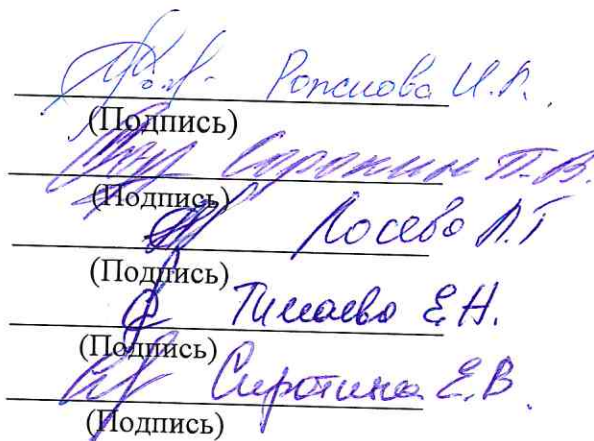 Рожнова И.Р.
(Подпись)
Сорокин П.В.
(Подпись)
Лосева Л.Г
(Подпись)
Тимаева Е.Н.
(Подпись)
Сиротина Е.В.
(Подпись)